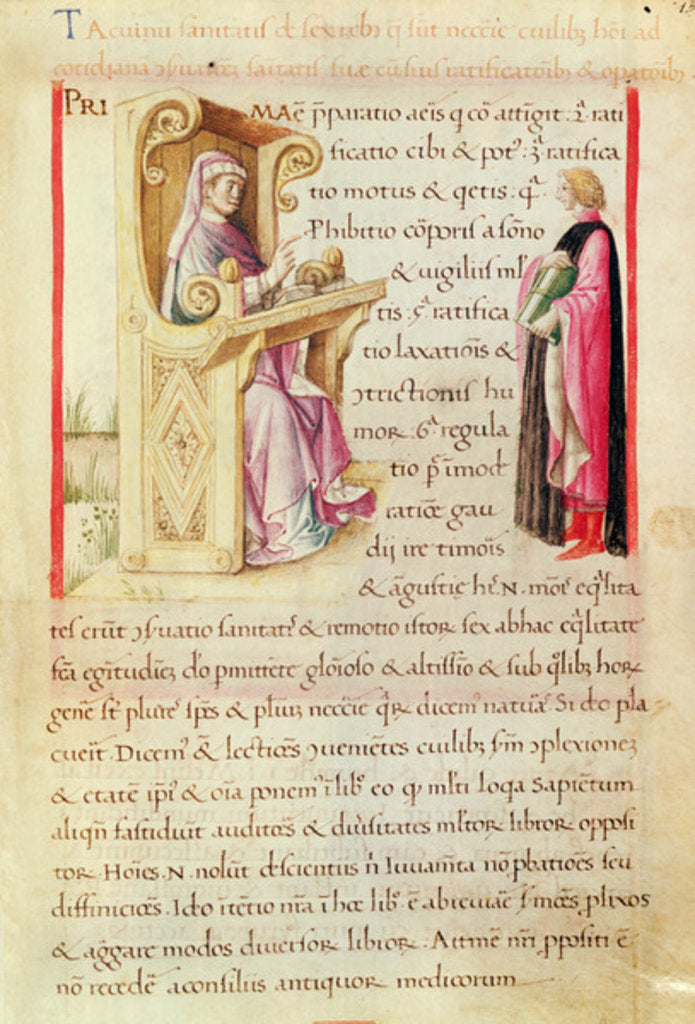 TAcuinu sanitatis de sex rebꝰ q̄ sut neccīe cuilibꝫ hōi ad
cotidiana ↄseruatōꝫ sāitatis sue cū suis ratificatōibꝰ & opatōibꝰ
PRI MAē p̄paratio aeis q̄ cō attīgit. 2ᵃ. rati
ficatio cibi & potꝰ. 3ᵃ. ratifica
tio motus & qetis. 4ᵃ
Phibitio cōporis a sōno
& uigiliis ml̄
tis. 5ᵃ. ratifica
tio laxatiōis &
ↄtrictionis hu
moꝝ. 6ᵃ. regula
tio p̄ imod
ratiōe gau
dij ire timōis
& āgustie
tes erūt ↄseruatio sanitatꝭ & remotio istoꝝ sex ab hac eq̄litate
fc̄a egritudīeꝫ dō pmittēte glōioso & altissīo & sub q̄libꝫ hoꝝ
genē sūt plureˢ sp̄s & pluꝫ neccīe q̄ꝛ dicemꝰ naturaˢ. Si dō pla
cueīt. Dicemꝰ & lectiōes ↄuenīetes cuilibꝫ sm̄ ↄplexioneꝫ
& etatē ipīꝰ & oīa ponemꝰ ī libꝰ eo qꝫ ml̄ti loqa Sapiētum
aliqn̄ fastidiūt auditōes & diūsitates ml̄toꝝ libroꝝ opposi
toꝝ. Hōies .N. nolūt de scientiis n̄ Iuuam̄ta nō pbatiōes seu
diffiniciōes. Idō itētio nr̄a ī hoc libꝰ ē abreuiaē sm̄ōes plixos
& aggāre modos diuersoꝝ libroꝝ. Attamē nr̄i ppositi ē
nō recedē a consiliis antiquoꝝ medicorum